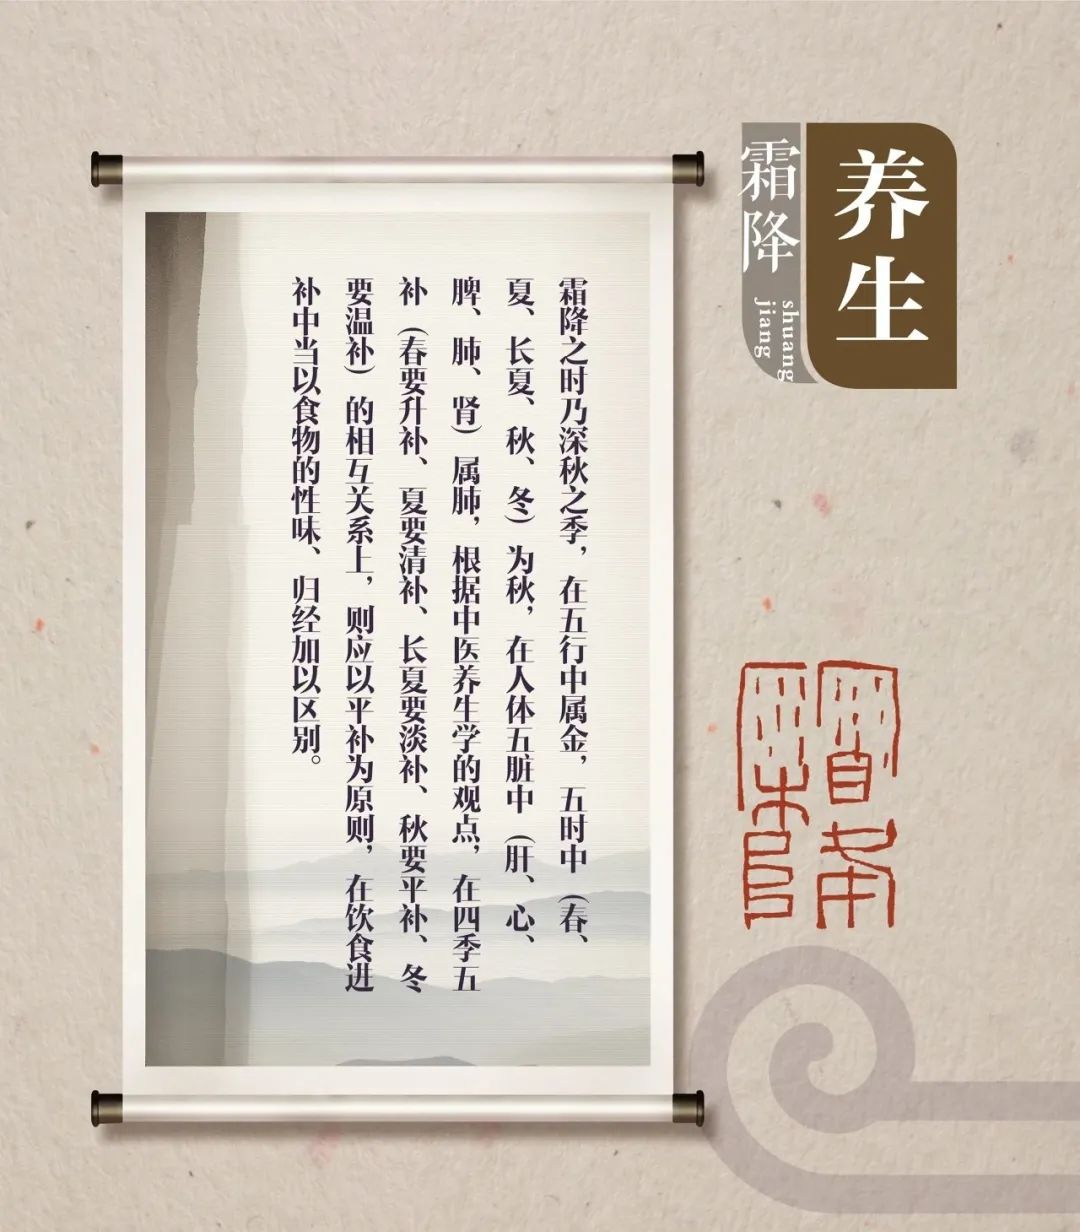 养生
霜降
shuang
jiang
霜降之时乃深秋之季，在五行中属金，五时中（春、
夏、长夏、秋、冬）为秋，在人体五脏中（肝、心、
脾、肺、肾）属肺，根据中医养生学的观点，在四季五
补（春要升补、夏要清补、长夏要淡补、秋要平补、冬
要温补）的相互关系上，则应以平补为原则，在饮食进
补中当以食物的性味、归经加以区别。
霜降